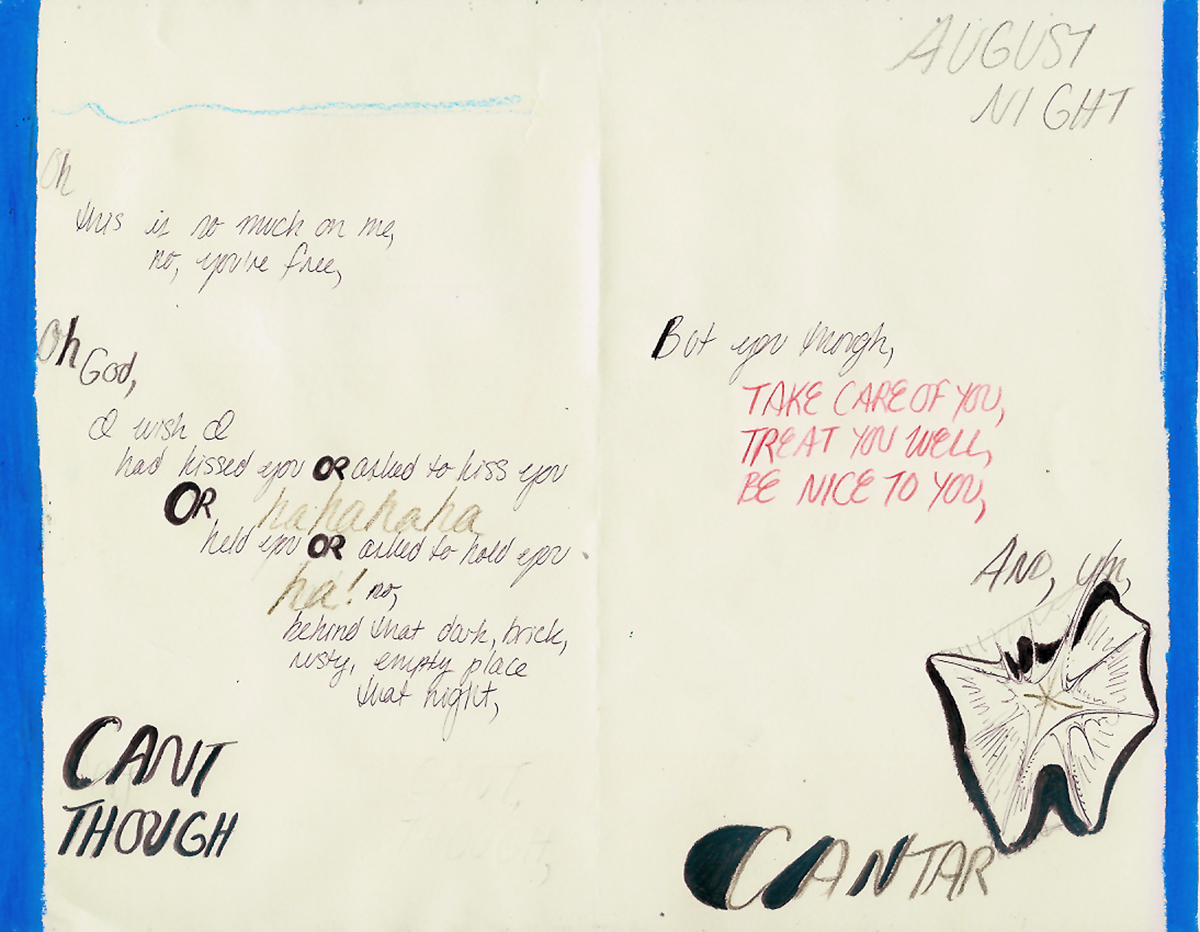 AUGUST
NIGHT
Oh
this is so much on me,
no, you're free,
Oh God,
I wish I
had kissed you OR asked to kiss you
OR hahahaha
held you OR asked to hold you
ha! no,
behind that dark, brick,
rusty, empty place
that night,
CANT
THOUGH
But you though,
TAKE CARE OF YOU,
TREAT YOU WELL,
BE NICE TO YOU,
AND, um,
CANTAR